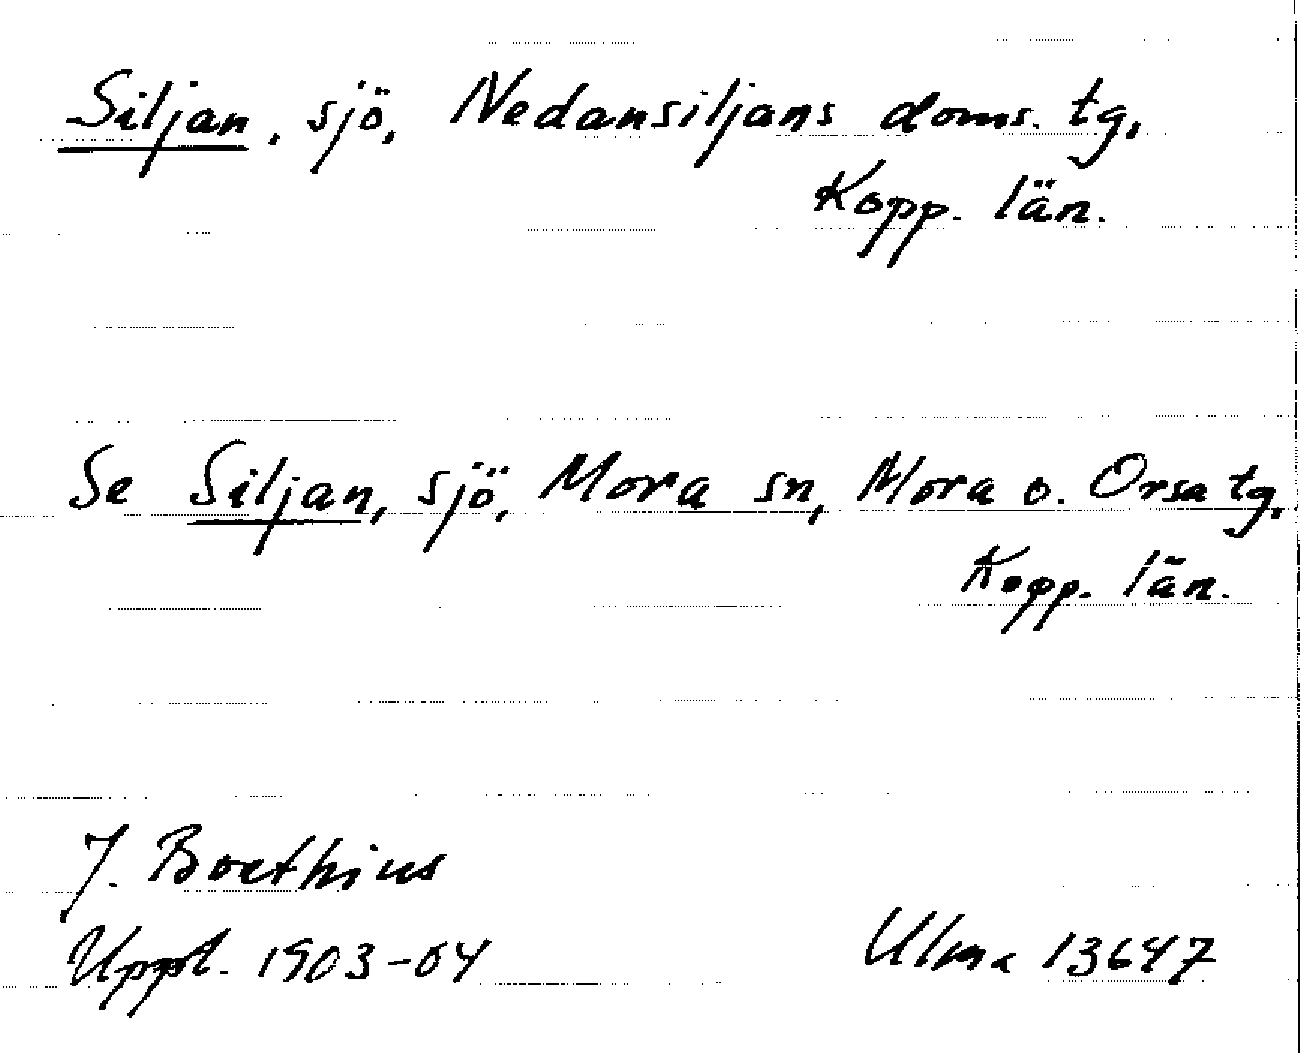 Siljan, sjö, Nedansiljans doms. tg,
Kopp. län.
Se Siljan, sjö, Mora sn, Mora o. Orsa tg,
Kopp. län.
J. Boethius
Uppt. 1903-04 Ulma 13647